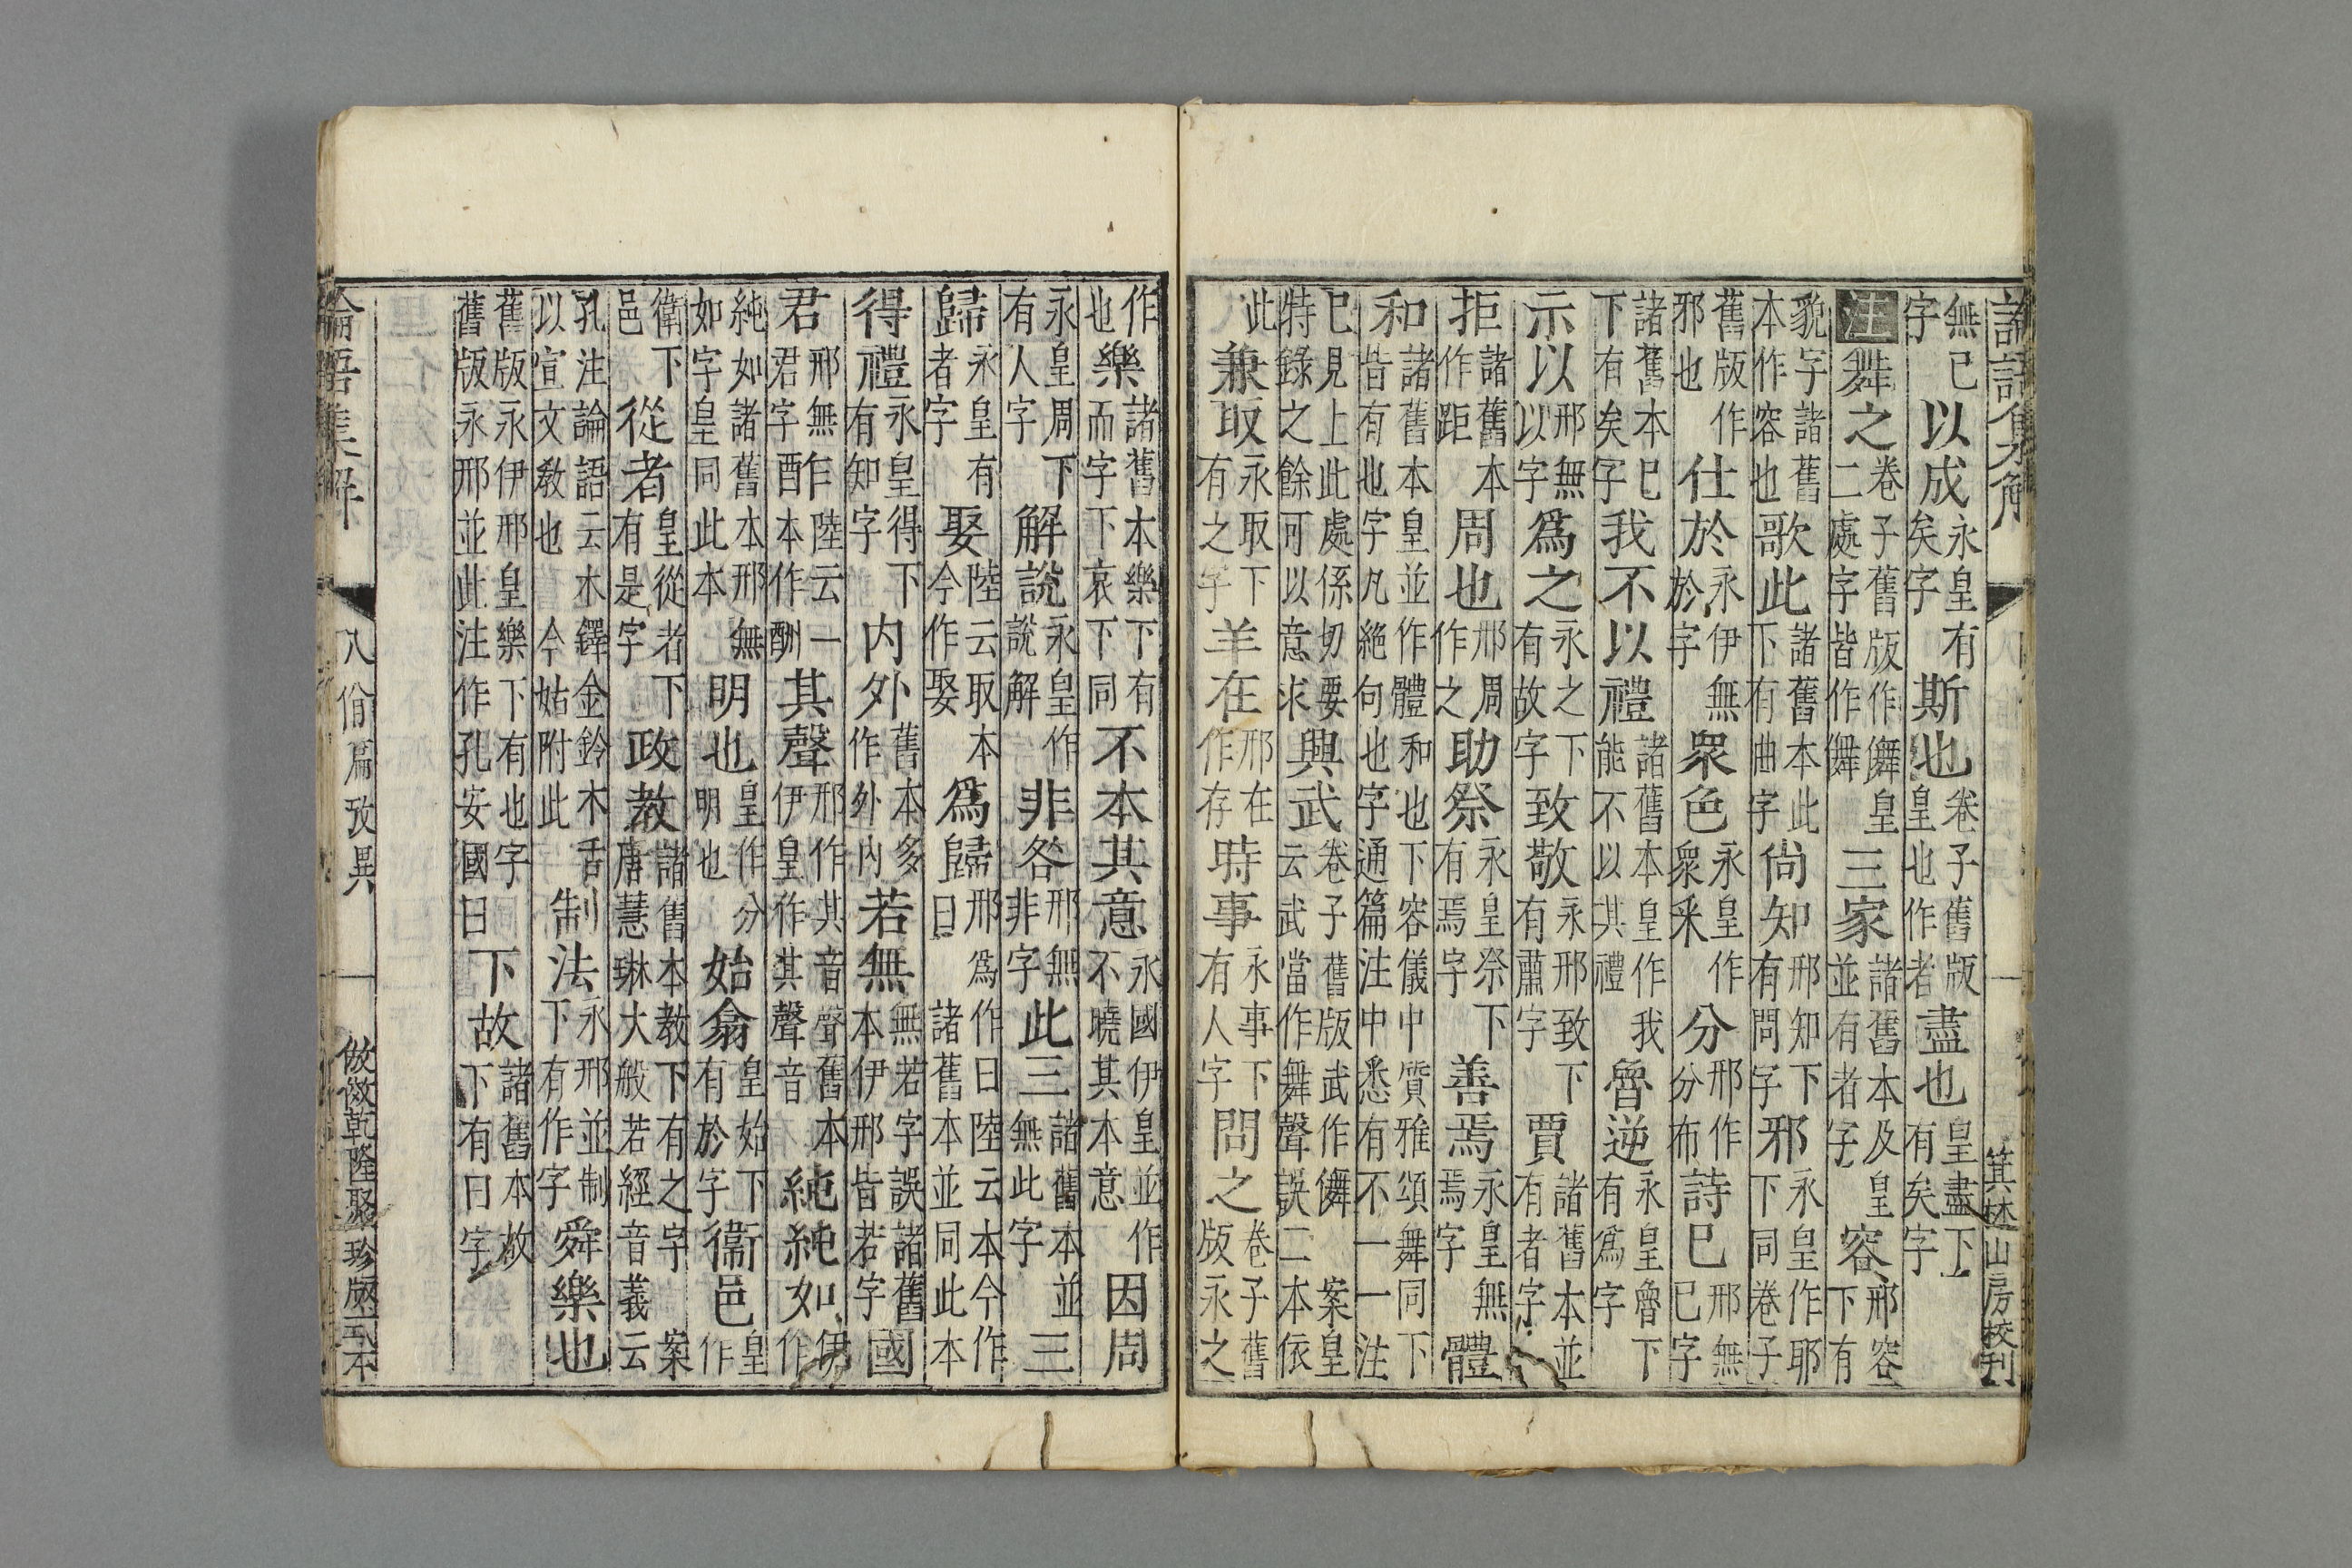 論語集解 箕林山房校刊
無已字以成永皇有矣字斯也卷子舊版皇也作者盡也皇盡下有矣字
注舞之卷子舊版作儛皇二處字皆作儛三家諸舊本及皇並有者字容邢容下有
貌字諸舊本作容也歌此諸舊本此下有曲字尚知邢知下有問字邪永皇作耶下同卷子
舊版作邪也仕於永伊無於字衆色永皇作衆釆分邢作分布詩巳邢無巳字
諸舊本巳下有矣字我不以禮諸舊本皇作我能不以其禮魯逆永皇魯下有爲字
示以邢無以字爲之永之下有故字致敬永邢致下有肅字賈諸舊本並有者字
拒諸舊本作距周也邢周作之助祭永皇祭下有焉字善焉永皇無焉字體
和諸舊本皇並作體和也下容儀中質雅頌舞同下皆有也字凡絶句也字通篇注中悉有不一一注
巳見上此處係切要特錄之餘可以意求興武卷子舊版武作儛案皇云武當作舞聲誤二本依
此兼取永取下有之字羊在邢在作存時事永事下有人字問之卷子舊版永之
作也樂諸舊本樂下有而字下哀下同不本其意永國伊皇並作不曉其本意因周
永皇周下有人字解說永皇作說解非咎邢無非字此三諸舊本並無此字三
歸永皇有者字娶陸云取本今作娶爲歸邢爲作曰陸云本今作曰諸舊本並同此本
得禮永皇得下有知字内外舊本多作外内若無無若字誤諸舊本伊邢皆若字國
君邢無君字酉本作酬其聲邢作其音聲舊本伊皇作其聲音純純如伊作
純如諸舊本邢無如字皇同此本明也皇作分明也始翕皇始下有於字衞邑皇作
衞下邑從者皇從者下有是字政敎諸舊本敎下有之字案唐慧琳大般若經音義云
孔注論語云木鐸金鈴木舌以宣文敎也今姑附此制法永邢並制下有作字舜樂也
舊版永伊邢皇樂下有也字舊版永邢並此注作孔安國曰下故諸舊本故下有曰字
論語集解 八佾篇攷異 一 乾隆聚珍版式本